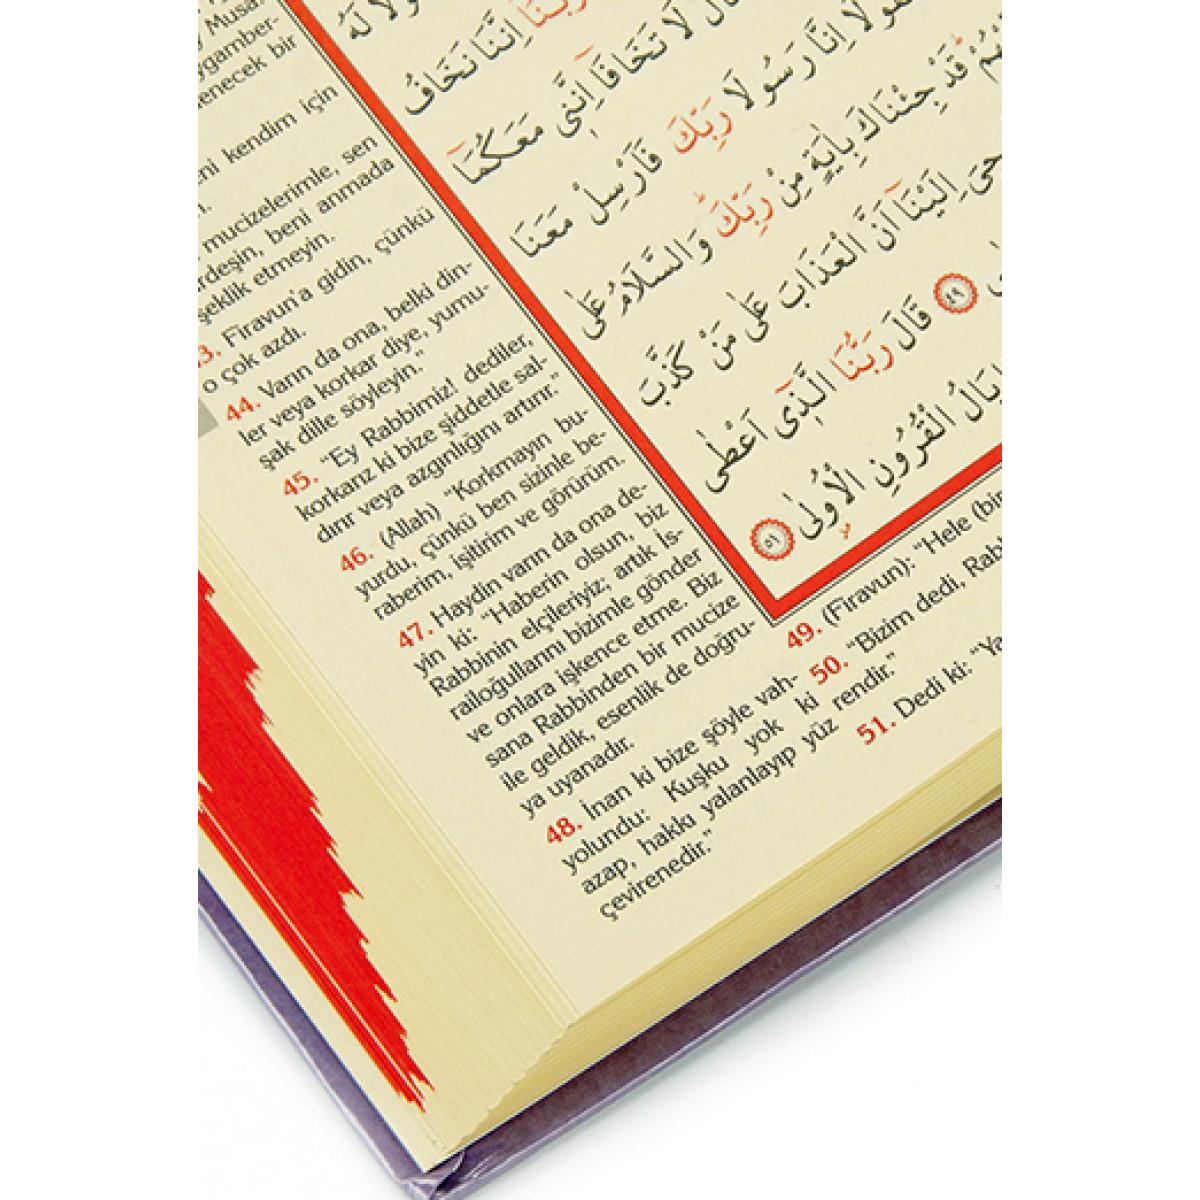 Musa!
ygamber-
enecek bir
ni kendim için
mucizelerimle, sen
rdeşin, beni anmada
şeklik etmeyin.
3. Firavun'a gidin, çünkü
o çok azdı.
44. Varın da ona, belki din-
ler veya korkar diye, yumu-
şak dille söyleyin."
45. "Ey Rabbimiz! dediler,
korkarız ki bize şiddetle sal-
dırır veya azgınlığını artırır."
46. (Allah) "Korkmayın bu-
yurdu, çünkü ben sizinle be-
raberim, işitirim ve görürüm.
47. Haydin varın da ona de-
yin ki: "Haberin olsun, biz
Rabbinin elçileriyiz; artık İs-
railoğullarını bizimle gönder
ve onlara işkence etme. Biz
sana Rabbinden bir mucize
ile geldik, esenlik de doğru-
ya uyanadır.
48. İnan ki bize şöyle vah-
yolundu: Kuşku yok ki
azap, hakkı yalanlayıp yüz
çevirenedir."
49. (Firavun): "Hele (bir
50. "Bizim dedi, Rab
rendir."
51. Dedi ki: "Ya
لَهُ
رَبَّنَٓا اِنَّنَا نَخَافُ
قَالَ لَا تَخَافَٓا اِنَّن۪ي مَعَكُمَٓا
اِنَّا رَسُولَا رَبِّكَ فَاَرْسِلْ مَعَنَا
قَدْ جِئْنَاكَ بِاٰيَةٍ مِنْ رَبِّكَۜ وَالسَّلَامُ عَلٰى
اِلَيْنَٓا اَنَّ الْعَذَابَ عَلٰى مَنْ كَذَّبَ
٤٩ قَالَ رَبُّنَا الَّذ۪ٓي اَعْطٰى
بَالُ الْقُرُونِ الْاُو۫لٰى ٥١